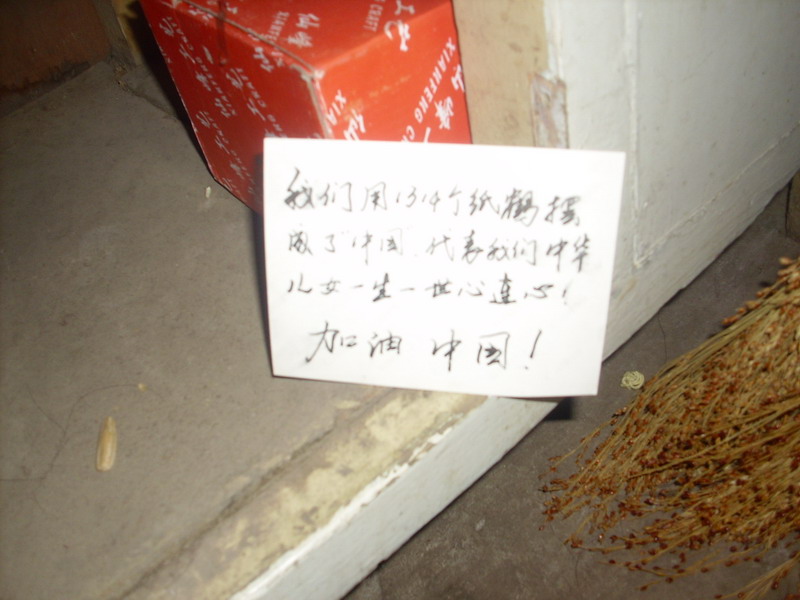 我们用1314个纸鹤摆
成了"中国"代表我们中华
儿女一生一世心连心!
加油 中国!
XIANFENG CRAFT
XIANFENG